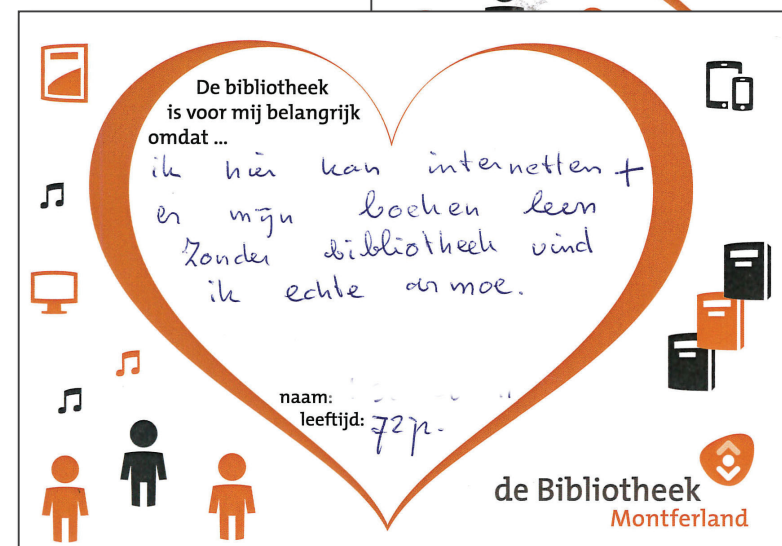 De bibliotheek
is voor mij belangrijk
omdat ...
ik hier kan internetten +
er mijn boeken leen
Zonder bibliotheek vind
ik echte armoe.
naam:
leeftijd: 72 jr.
de Bibliotheek
Montferland